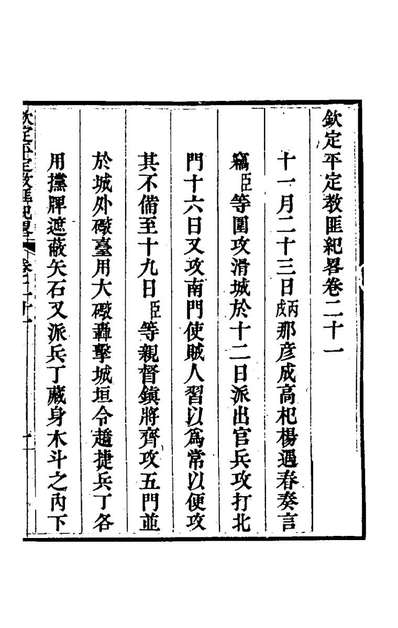 欽定平定教匪紀畧卷二十一
十一月二十三日丙戌那彥成高杞楊遇春奏言
竊臣等圍攻滑城於十二日派出官兵攻打北
門十六日又攻南門使賊人習以爲常以便攻
其不備至十九日臣等親督鎮將齊攻五門並
於城外礮臺用大礮轟擊城垣令趫捷兵丁各
用攩牌遮蔽矢石又派兵丁藏身木斗之內下
欽定平定教匪紀畧 卷二十一 一